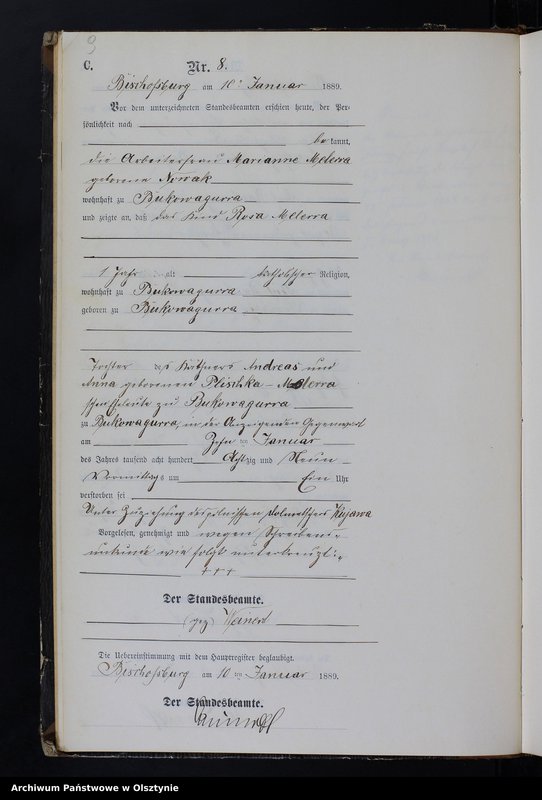 9
C.
Nr. 8.
Bischofsburg am 10ten Januar 1889.
Vor dem unterzeichneten Standesbeamten erschien heute, der Per-
sönlichkeit nach
be kannt,
die Arbeiterfrau Marianne Meterra
geborene Nowak
wohnhaft zu Bukowagurra
und zeigte an, daß das Kind Rosa Meterra
1 Jahr alt katholischer Religion,
wohnhaft zu Bukowagurra
geboren zu Bukowagurra
Tochter des Käthners Andreas und
Anna geborenen Plischka - Meterra
schen Eheleute zu Bukowagurra
zu Bukowagurra, in der Anzeigenden Gegenwart
am Zehn ten Januar
des Jahres tausend acht hundert Achtzig und Neun
Vormittags um Ein Uhr
verstorben sei
Unter Zuziehung des polnischen Dolmetschers Kujawa
Vorgelesen, genehmigt und wegen Schreibens-
unkunde wie folgt unterkreuzt:
+++
Der Standesbeamte.
(gez) Weinert
Die Uebereinstimmung mit dem Hauptregister beglaubigt.
Bischofsburg am 10 ten Januar 1889.
Der Standesbeamte.
Archiwum Państwowe w Olsztynie